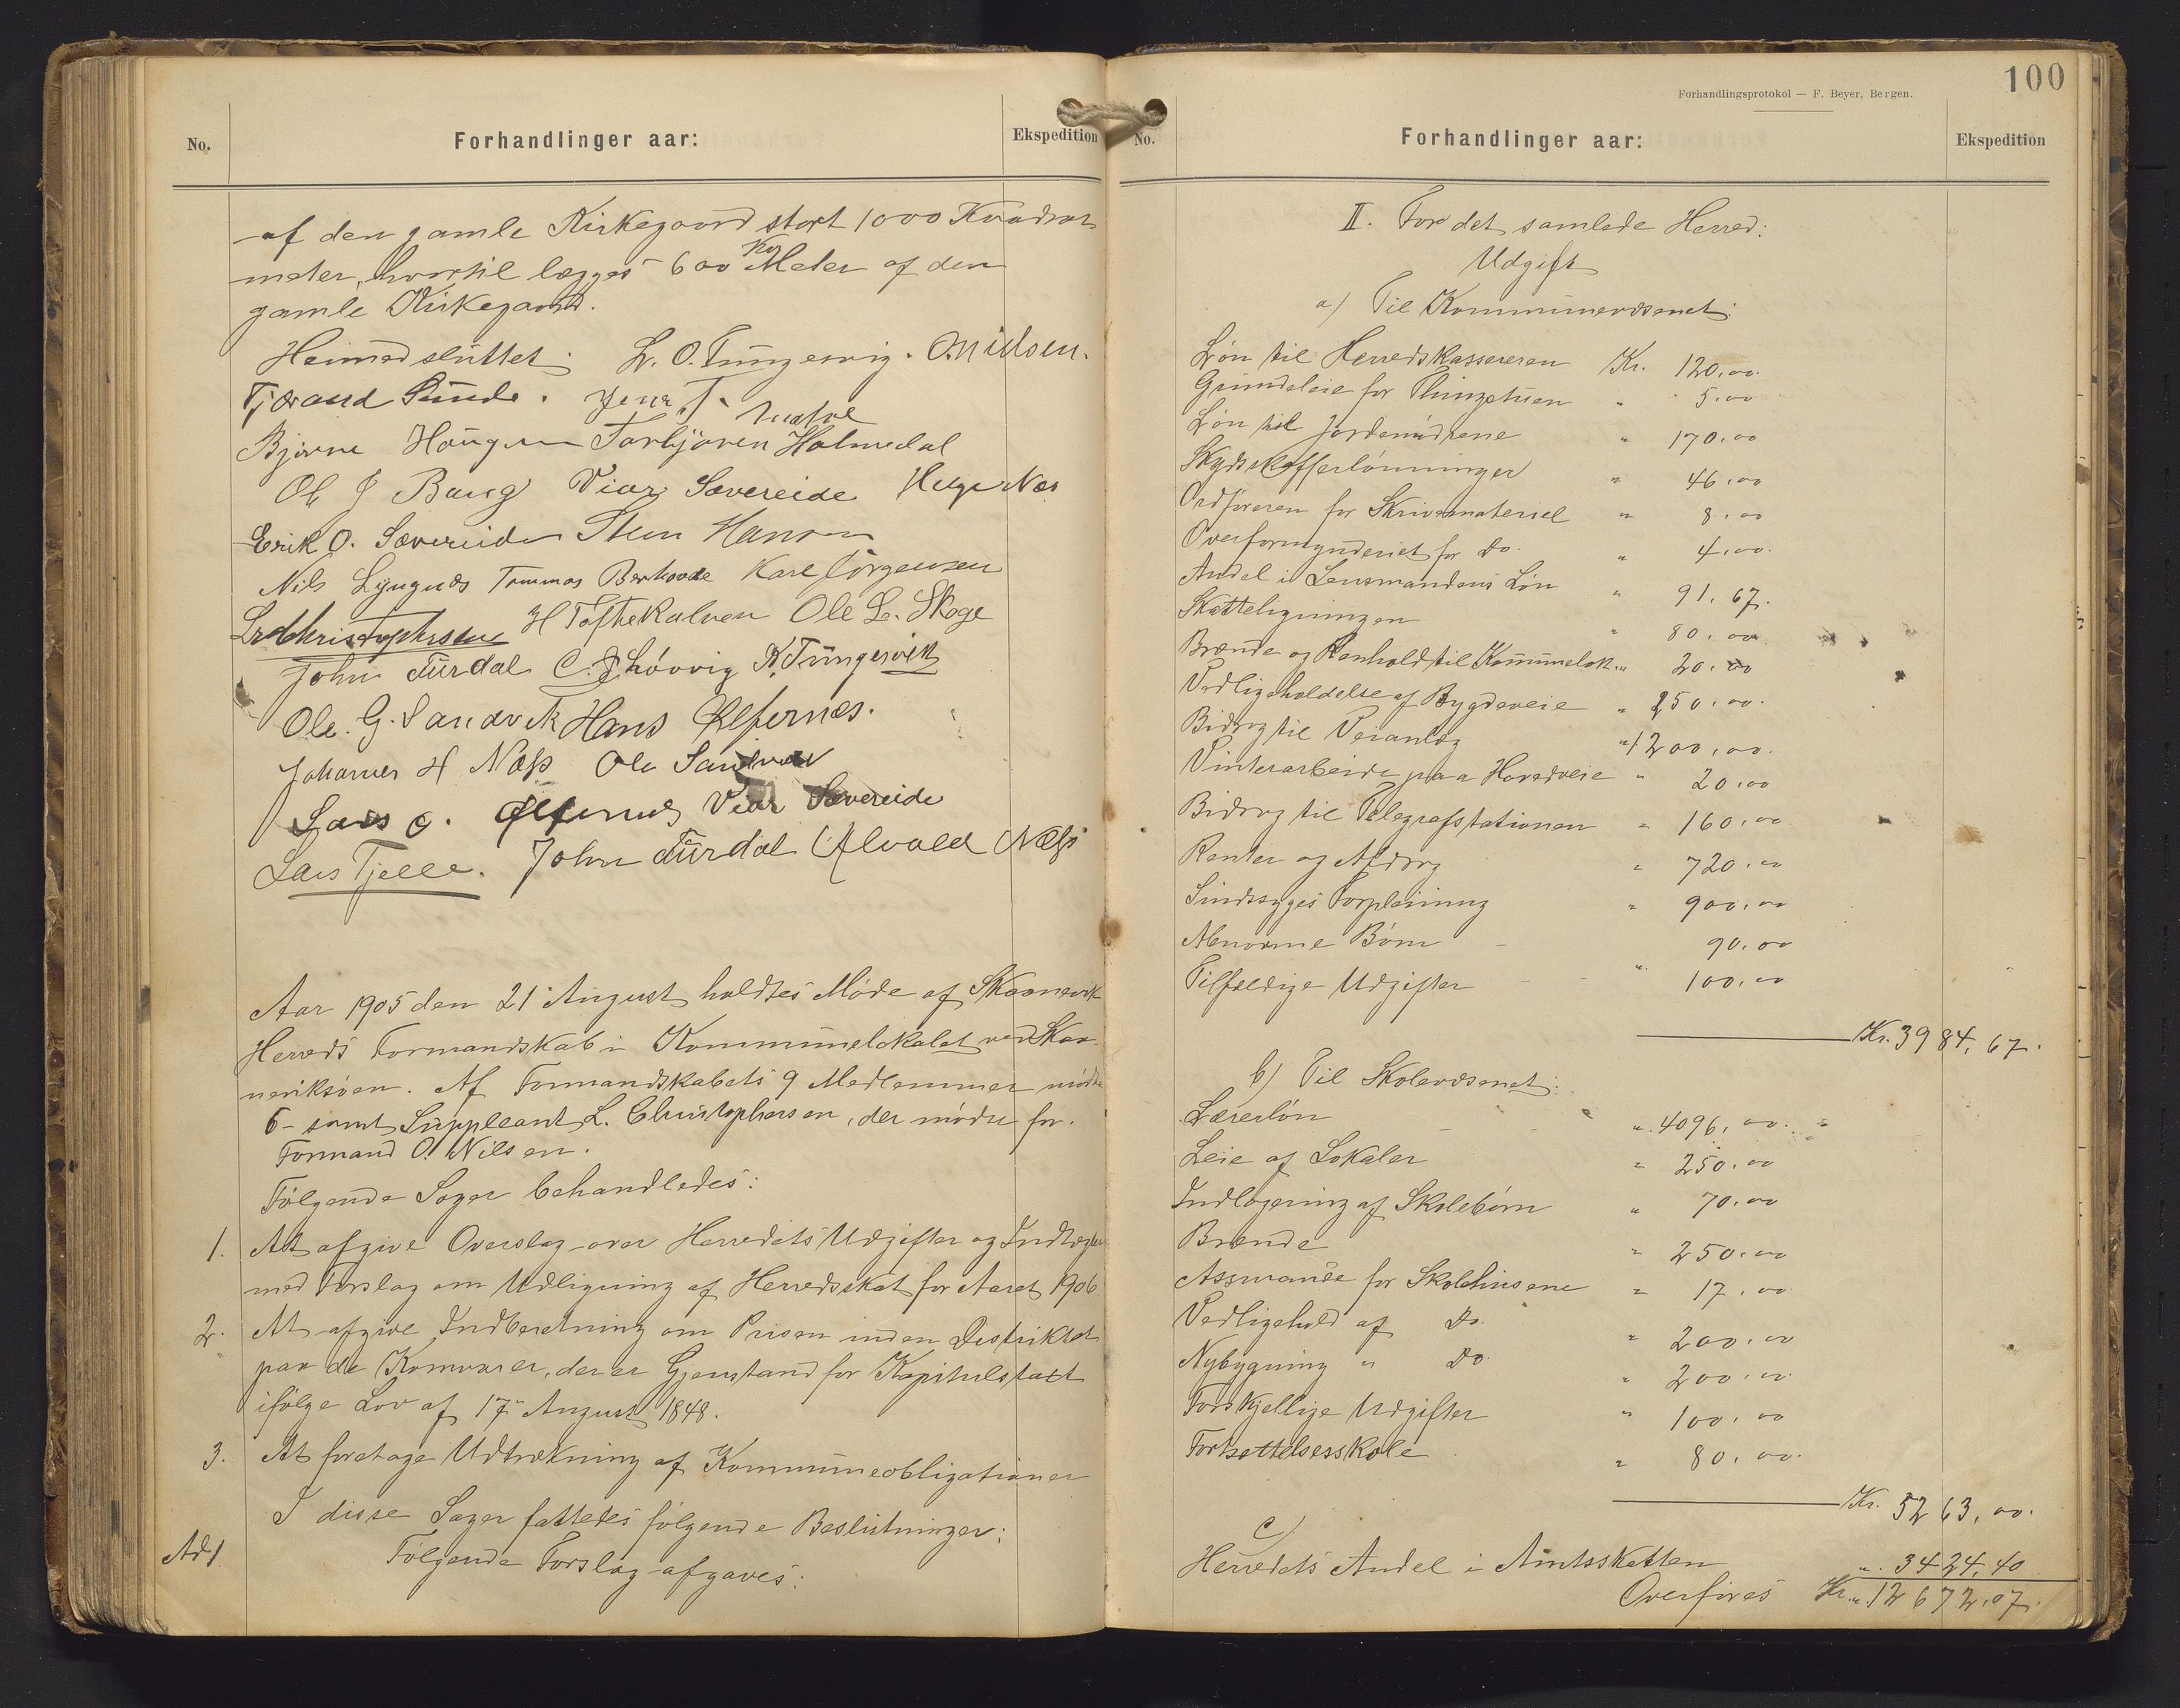 No.
Forhandlinger aar:
Ekspedition
af den gamle Kirkegaard stort 1000 Kvadrat
meter, hvortil lægges 600 Kv Meter af den
gamle Kirkegaard.
Hermed sluttet. L. O. Tungesvig. O. Nielsen.
Tjærand Sunde. Jens
Bjørne Haugen Torbjøren Holmedal
Ole J Baug Viar Sævereide Helge Næs
Erik O. Sævereide Sten Hansen
Nils Lyngnæs Tommas Berhovde Karl Jörgensen
L Christophersen H Toftekalven Ole L. Skoge
John Furdal C. Løvvig K. Tungesvik
Ole. G. Sandvik Hans Ølfernæs.
Johannes H Næss Ole Sandvik
Lars O. Ølfernæs Viar Sævereide
Lars Tjelle. John Furdal Alvald Næss
Aar 1905 den 21 August holdtes Møde af Skaanevik
Herreds Formandskab i Kommunelokalet ved Skaa-
neviksøen. Af Formandskabets 9 Medlemmer mødte
6 - samt Suppleant L. Christophersen, der mødte for
Formand O. Nilsen.
Følgende Sager behandledes:
1. At afgive Overslag over Herredets Udgifter og Indtægter
med Forslag om Udligning af Herredsskat for Aaret 1906
2. At afgive Indberetning om Prisen inden Distriktet
paa de Kornvarer, der er Gjenstand for Kapitelstaxt
ifølge Lov af 17 August 1848.
3. At foretage Udtrækning af Kommuneobligationer
I disse Sager fattedes følgende Beslutninger:
Ad 1 Følgende Forslag afgaves:
100
Forhandlingsprotokol — F. Beyer, Bergen.
No.
Forhandlinger aar:
Ekspedition
II. For det samlede Herred:
Udgift
a) Til Kommunevæsenet:
Løn til Herredskassereren Kr. 120.00
Grundleie for Thingstuen " 5.00
Løn til Jordemødrene " 170.00
Skydsskafferlønninger " 46.00
Ordføreren for Skrivemateriel " 8.00
Overformynderiet for Do. " 4.00.
Andel i Lensmandens Løn " 91.67.
Skatteligningen " 80.00
Brænde og Renhold til Kommunelok. " 20.00
Vedligeholdelse af Bygdeveie " 250.00.
Bidrag til Veianlæg " 1200.00.
Vinterarbeide paa Hovedveie " 20.00
Bidrag til Telegrafstationen " 160.00
Renter og Afdrag " 720.00
Sindssyges Forpleining " 900.00
Abnorme Børn - 90.00
Tilfældige Udgifter " 100.00
Kr. 3984.67.
b) Til Skolevæsenet:
Lærerløn " 4096.00.
Leie af Lokaler " 250.00
Indlogering af Skolebørn " 70.00
Brænde " 250.00
Assurance for Skolehusene " 17.00
Vedligehold af Do. " 200.00
Nybygning " Do. " 200.00
Forskjellige Udgifter " 100.00
Fortsættelsesskole " 80.00.
Kr. 5263.00.
c)
Herredets Andel i Amtsskatten " 3424.40
Overføres Kr. 12672.07.